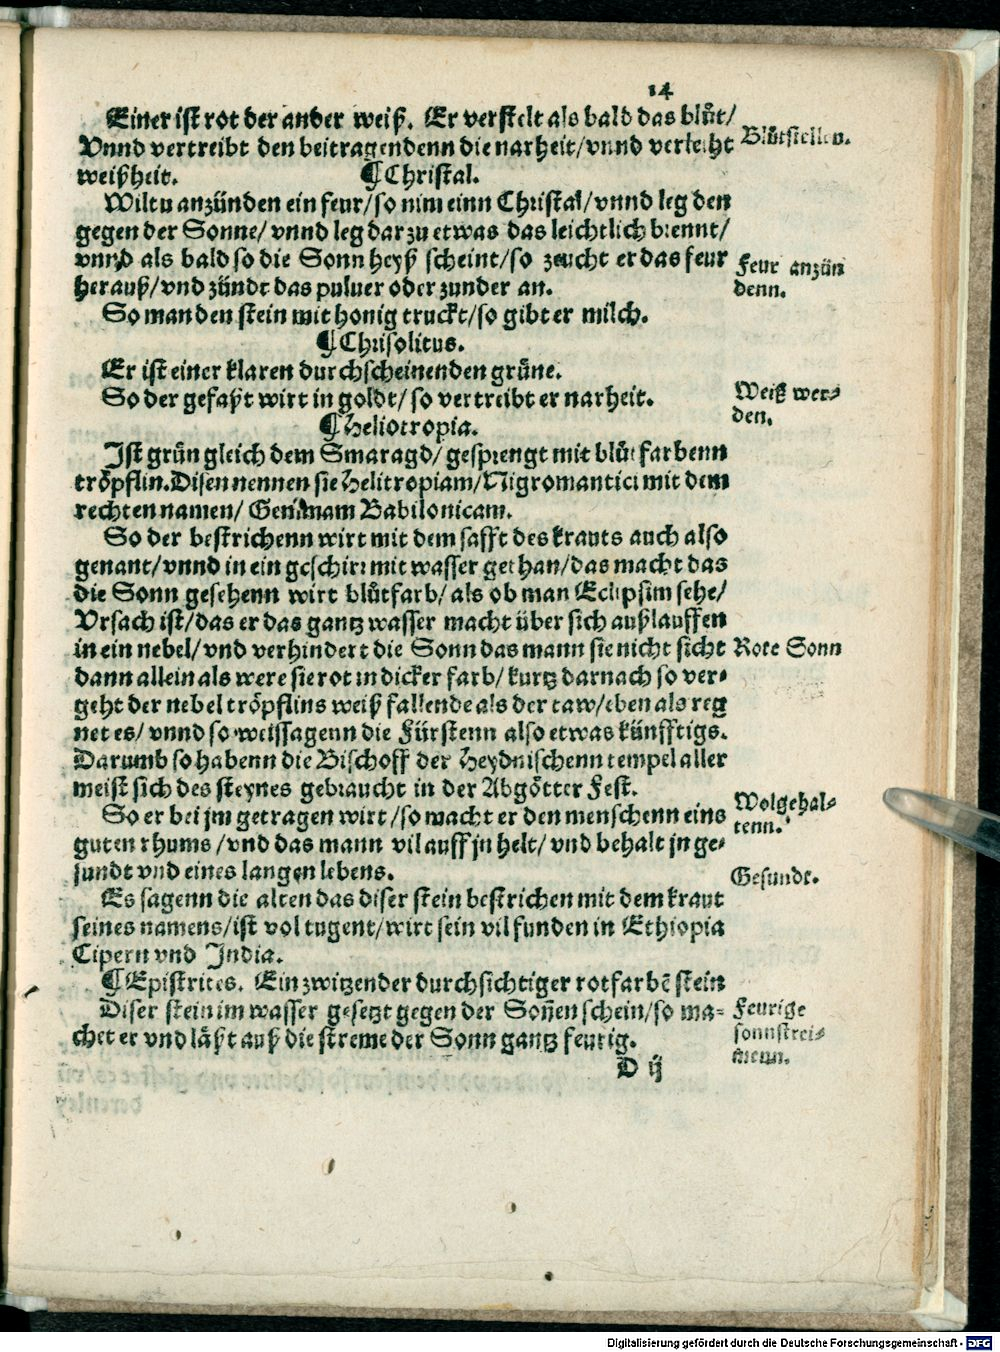 14
Einer ist rot der ander weiß. Er verstelt als bald das blůt/
Vnnd vertreibt den beitragendenn die narheit/vnnd verleiht
weißheit. ¶Christal.
Blůtstellen.
Wiltu anzünden ein feur/so nim einn Christal/vnnd leg den
gegen der Sonne/vnnd leg darzu etwas das leichtlich brennt/
vnnd als bald so die Sonn heyß scheint/so zeucht er das feur
herauß/vnd zündt das puluer oder zunder an.
Feur anzün
denn.
So man den stein mit honig truckt/so gibt er milch.
¶Chrisolitus.
Er ist einer klaren durchscheinenden grüne.
So der gefaßt wirt in goldt/so vertreibt er narheit.
Weiß wer-
den.
¶Heliotropia.
Ist grün gleich dem Smaragd/gesprengt mit blůtfarbenn
tröpflin. Disen nennen sie Helitropiam/Nigromantici mit dem
rechten namen/ Gemmam Babilonicam.
So der bestrichenn wirt mit dem safft des krauts auch also
genant/vnnd in ein geschirr mit wasser gethan/das macht das
die Sonn gesehenn wirt blůtfarb/als ob man Eclipsim sehe/
Vrsach ist/das er das gantz wasser macht über sich außlauffen
in ein nebel/vnd verhindert die Sonn das mann sie nicht sicht
Rote Sonn
dann allein als were sie rot in dicker farb/kurtz darnach so ver-
geht der nebel tröpflins weiß fallende als der taw/eben als reg
net es/vnnd so weissagenn die Fürstenn also etwas künfftigs.
Darumb so habenn die Bischoff der Heydnischenn tempel aller
meist sich des steynes gebraucht in der Abgötter Fest.
So er bei jm getragen wirt/so macht er den menschenn eins
guten rhums/vnd das mann vil auff jn helt/vnd behalt jn ge-
sundt vnd eines langen lebens.
Wolgehal-
tenn.
Gesundt.
Es sagenn die alten das diser stein bestrichen mit dem kraut
seines namens/ist vol tugent/wirt sein vil funden in Ethiopia
Cipern vnd India.
¶Epistrites. Ein zwitzender durchsichtiger rotfarbē stein
Diser stein im wasser gesetzt gegen der Soñen schein/so ma-
chet er vnd läßt auß die streme der Sonn gantz feurig.
Feurige
sonnstrei-
menn.
D ij
Digitalisierung gefördert durch die Deutsche Forschungsgemeinschaft - DFG